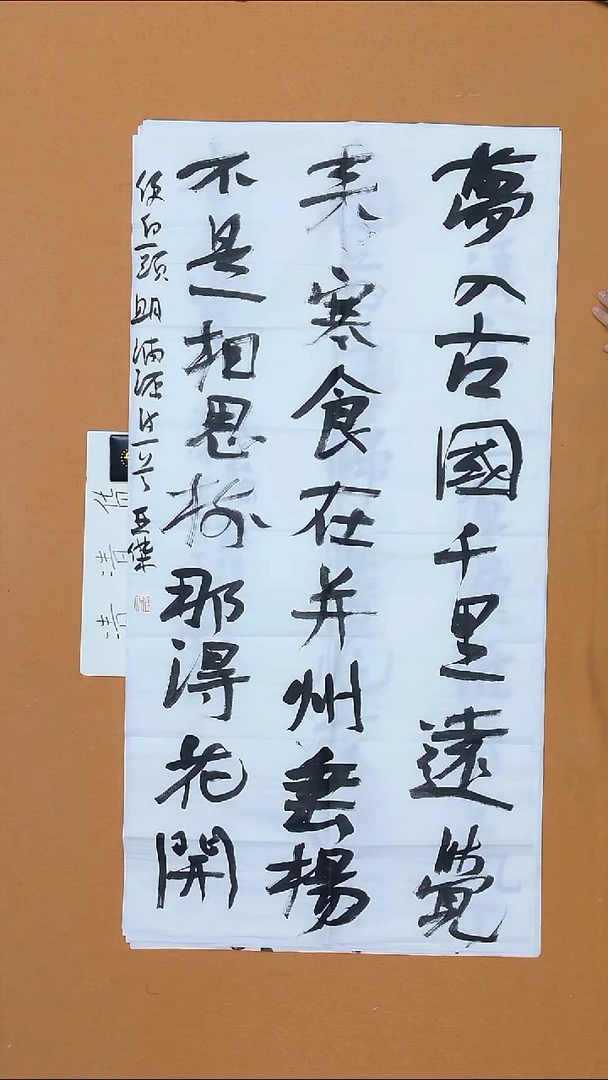 夢入古國千里遠覺
来寒食在并州垂楊
不是相思树那得花開
便白頭 明 詩一首